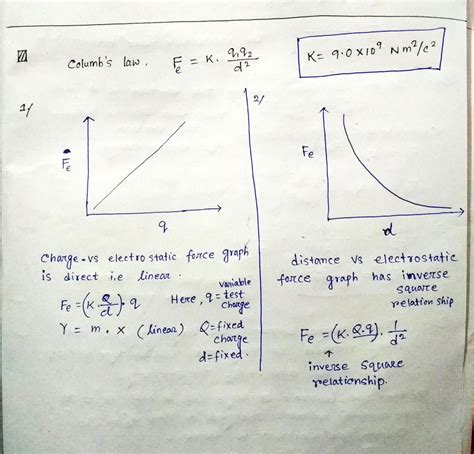 Columb's law. Fe = K. q1q2/d²
K= 9.0 x10⁹ Nm²/c²
1/
Fe
q
Charge-vs electrostatic force graph
is direct i.e linear.
Fe = (K.Q/d).q
Here, q = variable test charge
Y = m . x (linear)
Q=fixed charge
d=fixed.
2/
Fe
d
distance vs electrostatic
force graph has inverse
square
relationship
Fe = (K.Q.q). 1/d²
↑
inverse square
relationship.